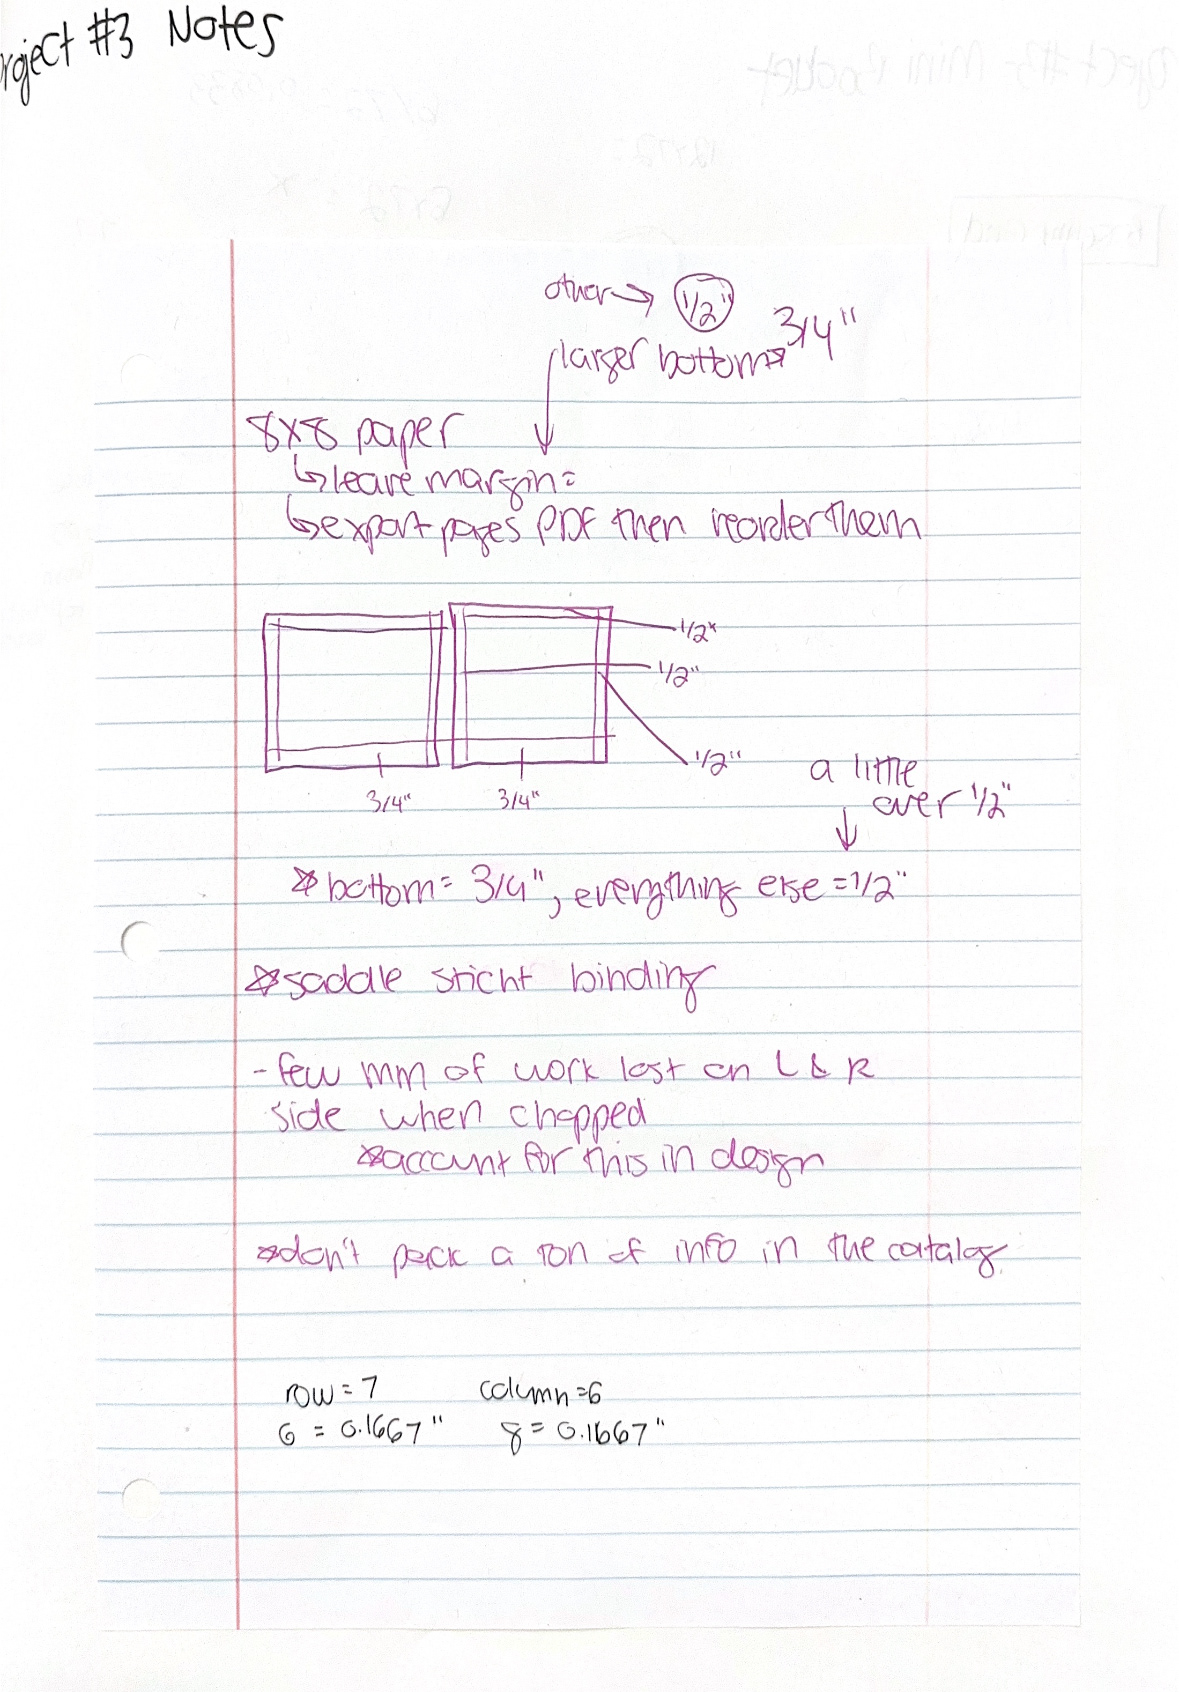 Project #3 Notes
other→ 1/2"
larger bottom→ 3/4"
8x8 paper
↳leave margin=
↳export pages PDF then reorder them
1/2"
1/2"
1/2"
3/4" 3/4"
a little
over 1/2"
*bottom= 3/4", everything else =1/2"
*saddle sticht binding
- few mm of work lost on L & R
side when chopped
*account for this in design
*don't pack a ton of info in the catalog
row = 7 column =6
6 = 0.1667" 8 = 0.1667"